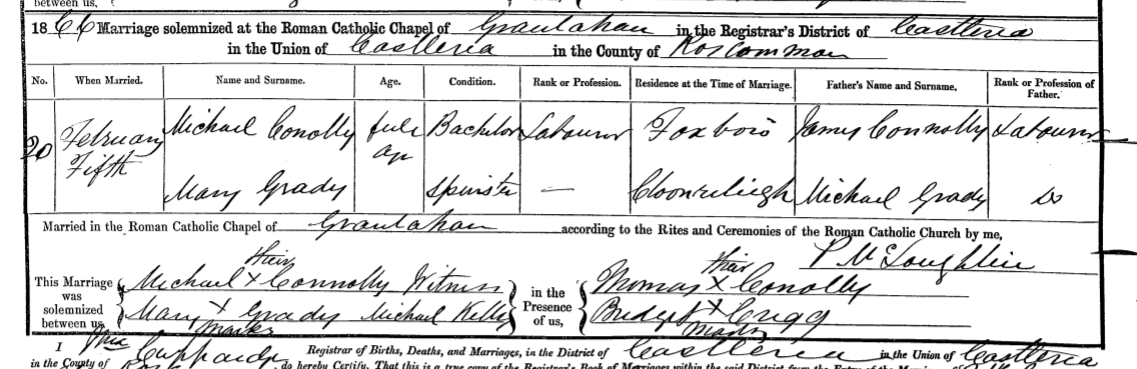 between us,
1866 Marriage solemnized at the Roman Catholic Chapel of Granlahan in the Registrar's District of Castlerea
in the Union of Castlerea in the County of Roscommon
No. When Married. Name and Surname. Age. Condition. Rank or Profession. Residence at the Time of Marriage. Father's Name and Surname. Rank or Profession of Father.
20 February Fifth Michael Conolly full age Bachelor Labourer Foxboro James Connolly Labourer
Mary Grady Spinster — Michael Grady Do
Married in the Roman Catholic Chapel of Granlahan according to the Rites and Ceremonies of the Roman Catholic Church by me,
P McLoughlin
This Marriage was solemnized between us, Michael their x Connolly Witness in the Presence of us, Thomas their x Conolly
Mary x Grady marks Michael Kelly Bridget x marks
I Registrar of Births, Deaths, and Marriages, in the District of Castlerea in the Union of Castlerea
in the County of do hereby Certify, That this is a true copy of the Registrar's Book of Marriages within the said District